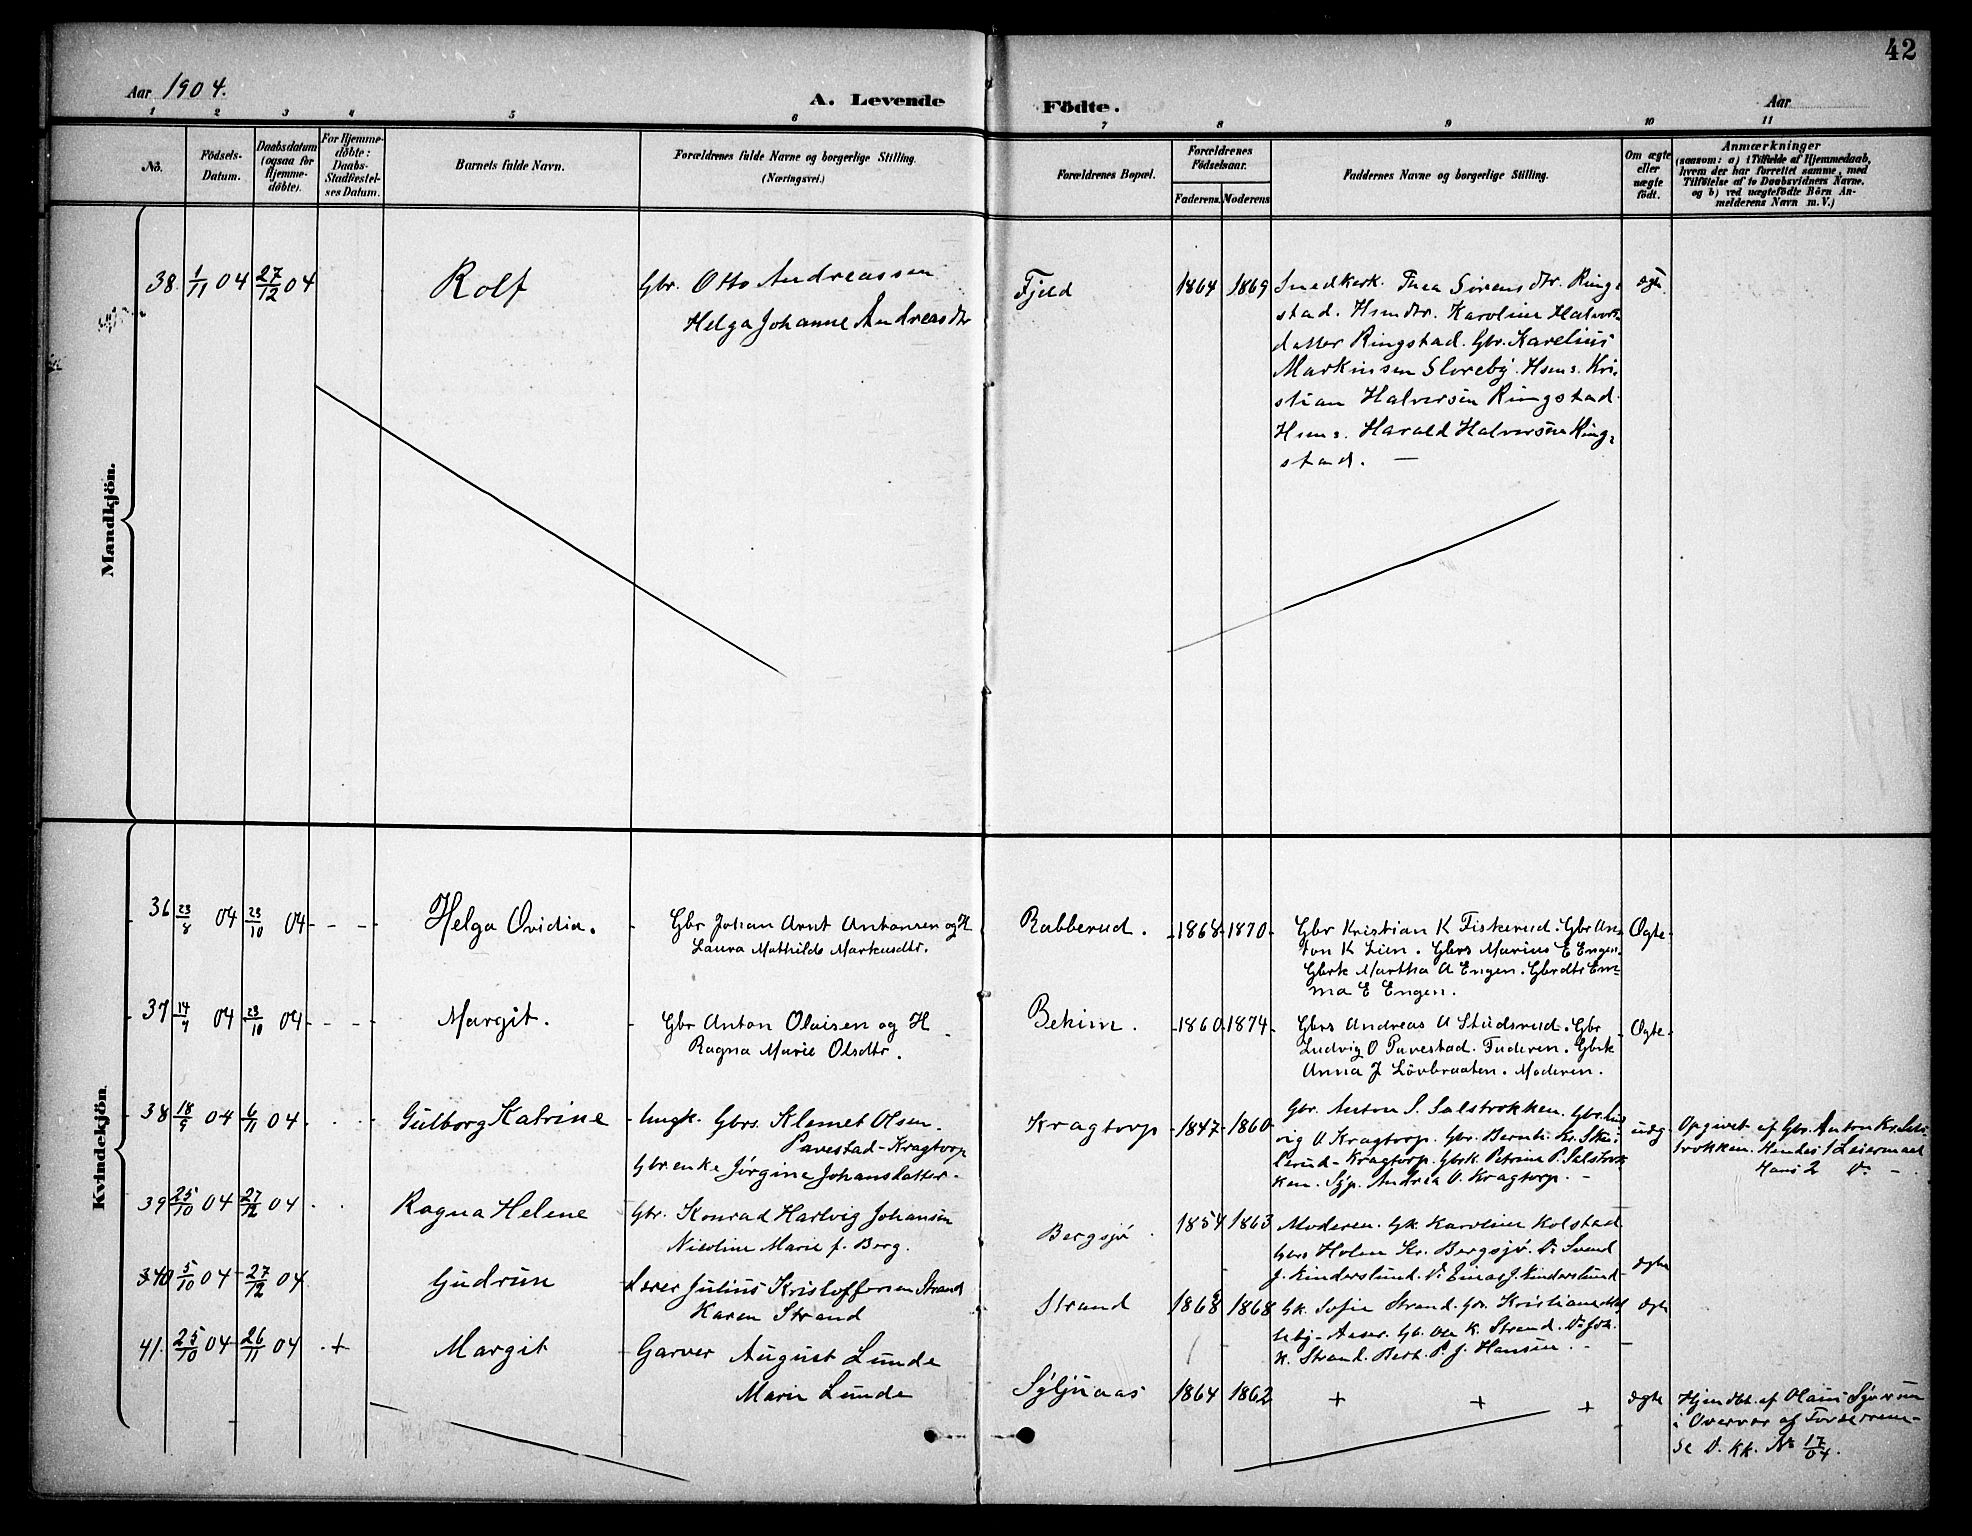 42
Aar 1904.
A. Levende Födte.
Aar
1 2 3 4 5 6 7 8 9 10 11
No.
Födsels-
Datum.
Daabsdatum
(ogsaa for
Hjemme-
döbte).
For Hjemme-
döbte:
Daabs-
Stadfæstel-
ses Datum.
Barnets fulde Navn.
Forældrenes fulde Navne og borgerlige Stilling.
(Næringsvei.)
Forældrenes Bopæl.
Forældrenes
Födselsaar.
Faderens. Moderens
Faddernes Navne og borgerlige Stilling.
Om ægte
eller
uægte
født.
Anmærkninger
(saasom: a) i Tilfælde af Hjemmedaab,
hvem der har forrettet samme, med
Tilföielse af to Daabsvidners Navne,
og b) ved uægtefödte Börn An-
melderens Navn m. V.)
Mandkjön.
38. 1/11 04 27/12 04 Rolf Gbr. Otto Andreassen
Helga Johanne Andreasdtr
Fjeld 1864 1869
Thea Sørensdtr. Ring-
stad. Hsmdtr. Karoline Halvors-
datter Ringstad. Gbr. Karelius
Markussen Sloreby. Hsms. Kri-
stian Halvorsen Ringstad.
Hsms. Harald Halvorsen Ring-
stad. —
ægte
Kvindekjön.
36 23/8 04 23/10 04 - - - Helga Ovidia.
Gbr Johan Arnt Antonsen og H
Laura Mathilde Markusdtr.
Rabberud. 1868 1870
Gbr Kristian K Fiskerud. Gbr An-
ton K Lien. Gbrs Marius E Engen.
Gbrk Martha A Engen. Gbrdtr Em-
ma E Engen.
Ægte
37 23/10 04 - - - Margit.
Gbr Anton Olaisen og H
Ragna Marie Olsdtr.
1860 1874
Gbrs Andreas A Studsrud. Gbr
Ludvig O Pavestad. Faderen. Gbrk
Anna J Lövbraaten. Moderen.
Ægte
38 04 6/11 04 Gulborg Katrine
Ungk. Gbrs. Klemet Olsen
Pavestad-Kragtorp
Gbr.enke Jörgine Johansdatter.
Kragtorp 1847 1860
Gbr. Anton S. Salstrokken. Gbr. Lud-
vig O Kragtorp. Gbr. Bernh. Kr.
-Kragtorp. Gbrk. Petrine P. Salstrok-
ken. Andrea O. Kragtorp. -
uægte
Opgivet af Gbr. Anton Kr. Sals-
trokken. Hendes 1 Leiermaal
Hans 2 Do -
39 25/10 04 27/12 04 Ragna Helene
Gbr. Konrad Hartvig Johansen
Nicoline Marie f. Berg.
Bergsjö 1854 1863
Moderen. Gk. Karoline Kolstad
Gbrs Holm Kr. Bergsjö. Do Svend
J. Kinderslund. Do Einar J. Kinderslund
ægte
40 5/10 04 27/12 04 Gudrun
Lærer Julius Kristoffersen Strand
Karen Strand
Strand 1868
Gk. Sofie Strand. Gbr. Kristian
K. Strand.
K. Strand. P. J. Hansen.
ægte
41. 25/10 04 26/11 04 + Margit
Garver August Lunde
Marie Lunde
Syljuaas 1864 1862 + + +
ægte
Hjemdbt. af Olaus
i Overvær af
se D. kk. No 17/04.